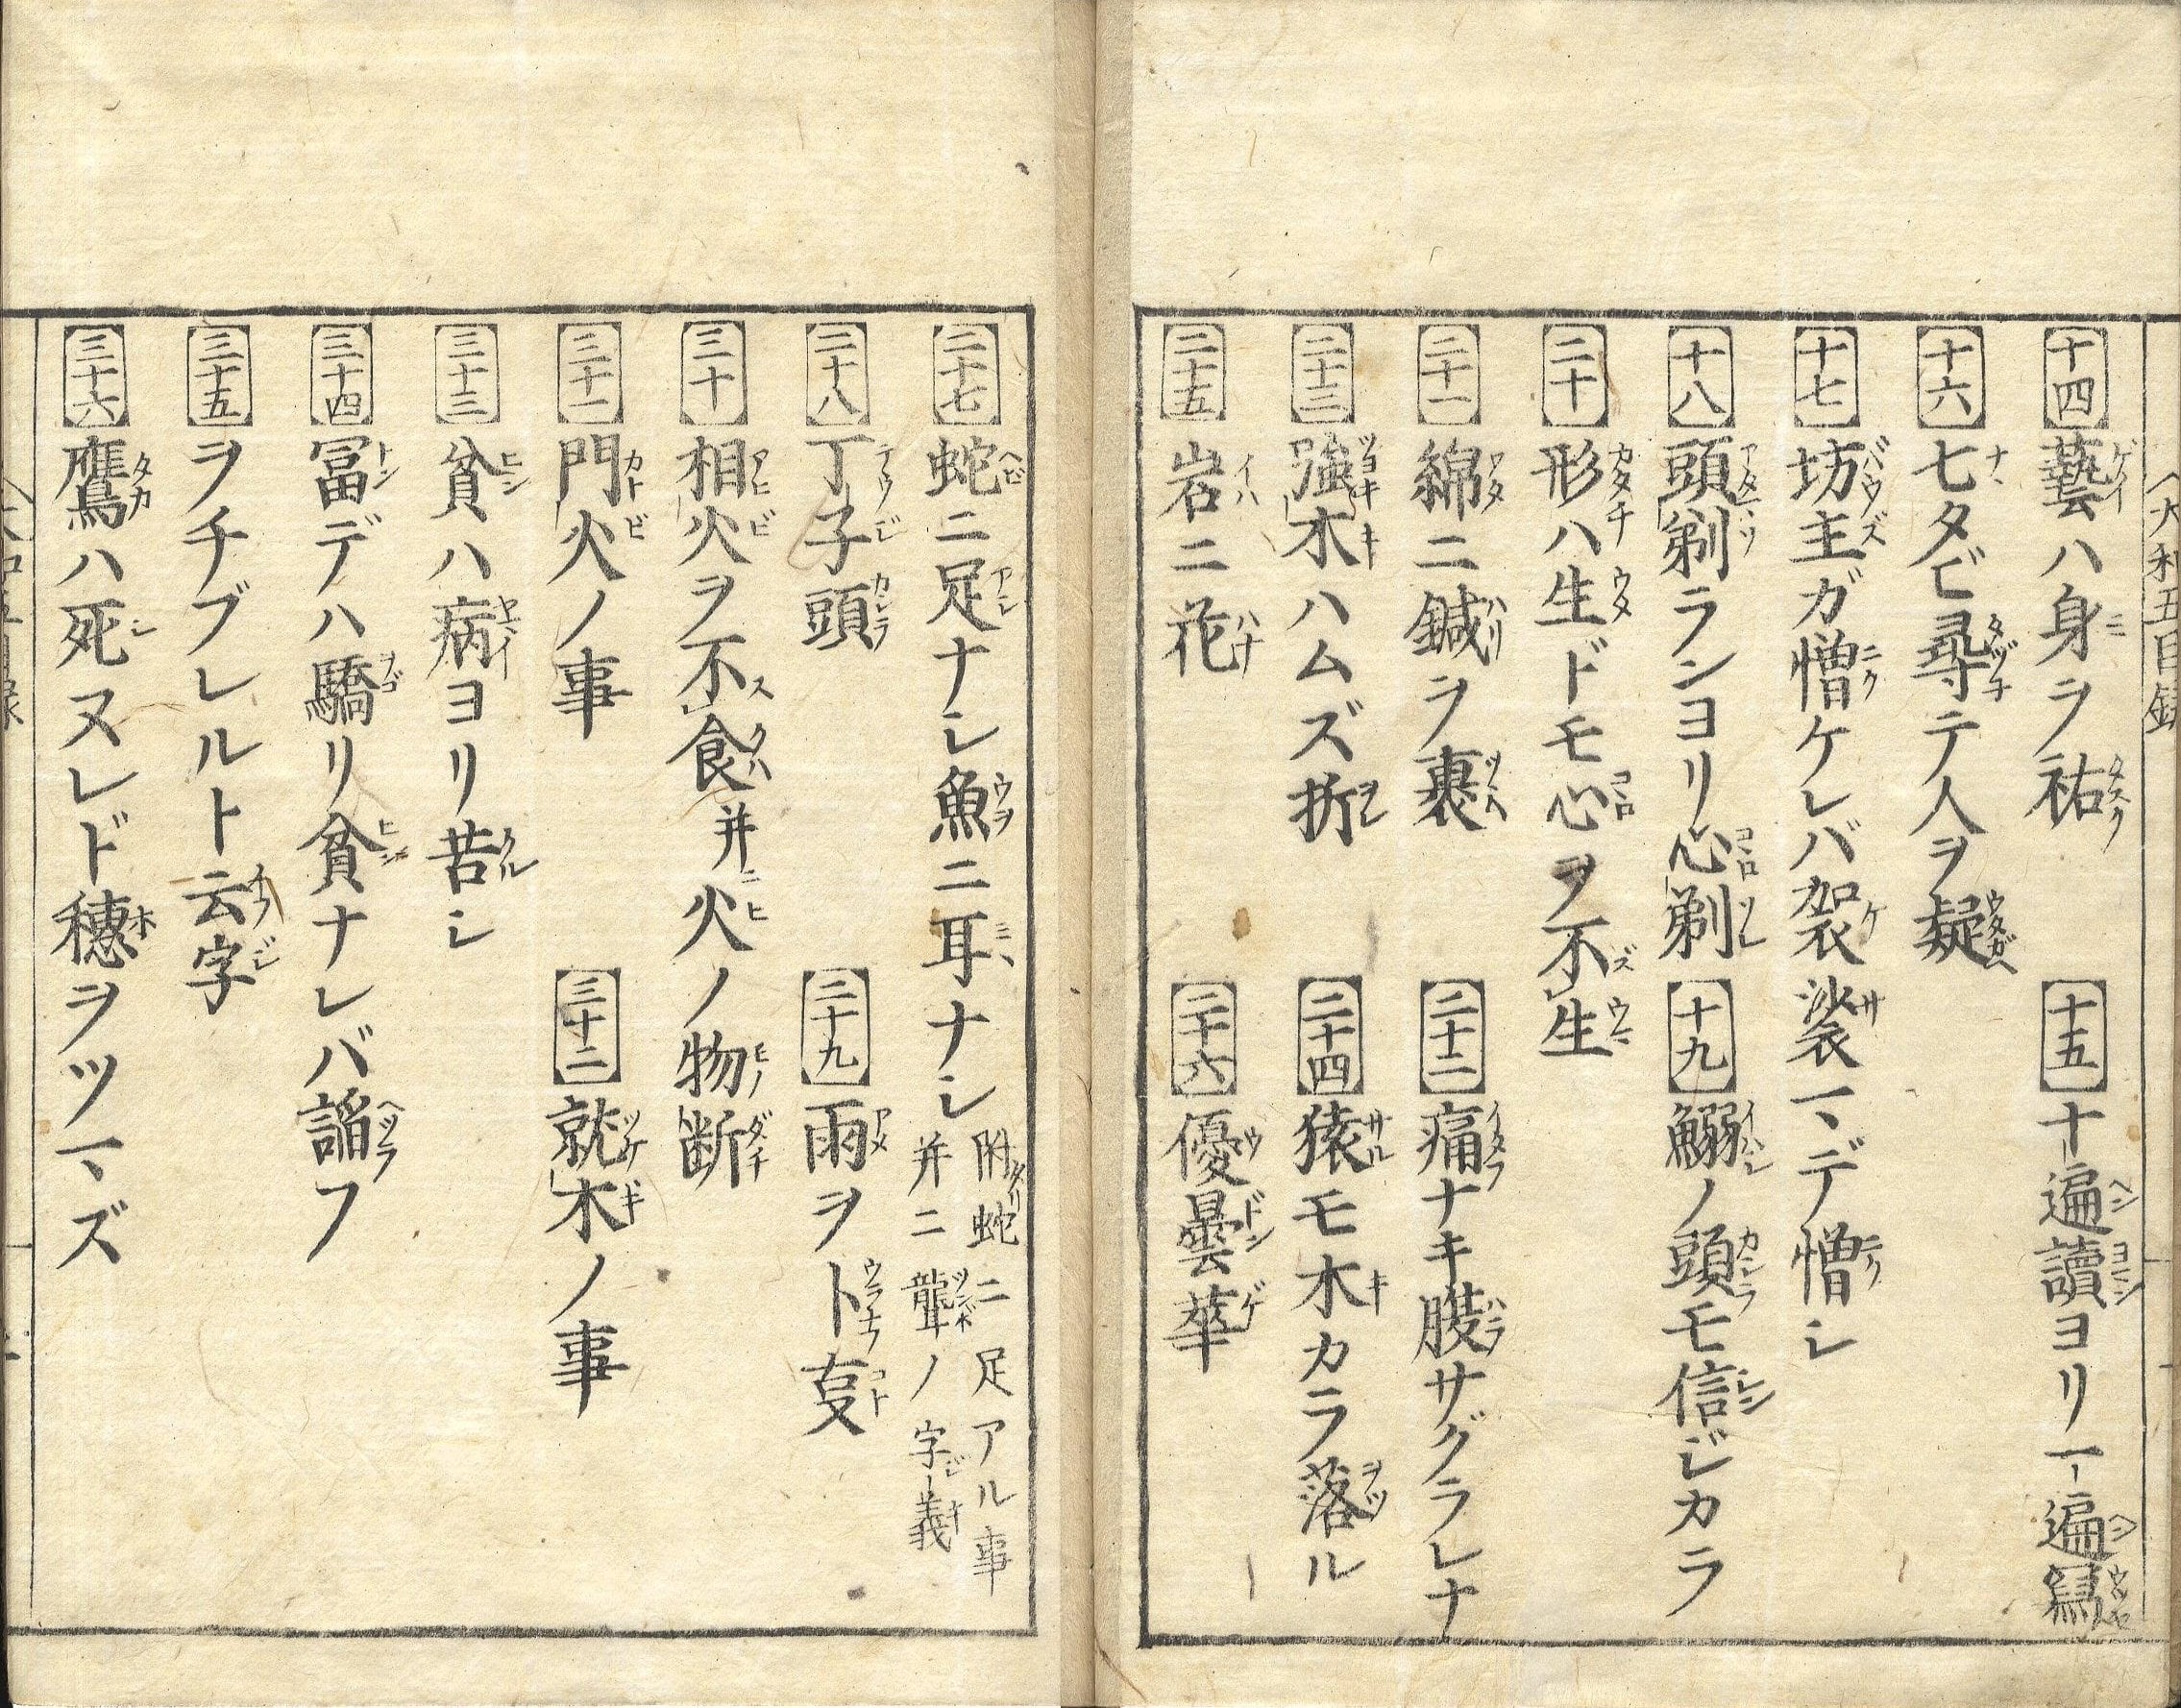 十四 藝ハ身ヲ祐 十五 十遍讀ヨリ一遍寫
十六 七タビ尋テ人ヲ疑
十七 坊主ガ憎ケレバ袈裟マデ憎シ
十八 頭剃ランヨリ心剃 十九 鰯ノ頭モ信ジカラ
二十 形ハ生ドモ心ヲ不生
二十一 綿ニ鍼ヲ裹 二十二 痛ナキ腹サグラレナ
二十三 強木ハムズ折 二十四 猿モ木カラ落ル
二十五 岩ニ花 二十六 優曇華
二十七 蛇ニ足ナシ魚ニ耳ナシ 附蛇ニ足アル事
并ニ聾ノ字義
二十八 丁子頭 二十九 雨ヲト叓
三十 相火ヲ不食并火ノ物断
三十一 門火ノ事 三十二 就木ノ事
三十三 貧ハ病ヨリ苦シ
三十四 冨デハ驕リ貧ナレバ謟フ
三十五 ヲチブレルト云字
三十六 鷹ハ死ヌレド穗ヲツマズ